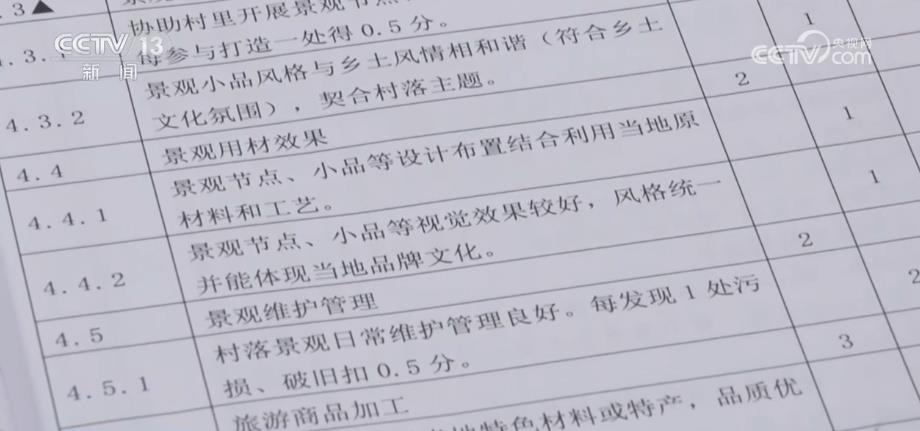 .3▲
协助村里开展景观节点
4.3.1
每参与打造一处得0.5分。
1
CCTV 13
新闻
央视网
CCTV.com
4.3.2
景观小品风格与乡土风情相和谐（符合乡土
文化氛围），契合村落主题。
2
4.4
景观用材效果
1
4.4.1
景观节点、小品等设计布置结合利用当地原
材料和工艺。
1
4.4.2
景观节点、小品等视觉效果较好，风格统一
并能体现当地品牌文化。
2
4.5
景观维护管理
2
4.5.1
村落景观日常维护管理良好。每发现1处污
损、破旧扣0.5分。
3
旅游商品加工
地特色材料或特产，品质优